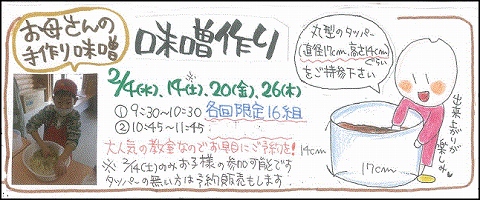 お母さんの
手作り味噌
味噌作り
2/4(水)、14(土)、20(金)、26(木)
①9:30~10:30 各回限定16組
②10:45~11:45
大人気の教室なのでお早目にご予約を!
※2/14(土)のみお子様の参加可能です
タッパーの無い方は予約販売もします。
丸型のタッパー
直径17cm、高さ14cm
ぐらい
をご持参下さい
出来上がりが
楽しみ
14cm
17cm